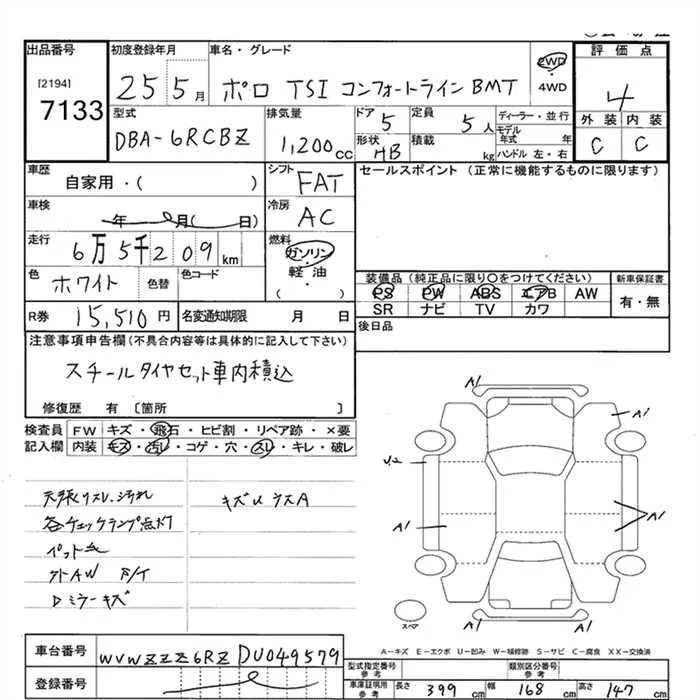 出品番号 初度登録年月 車名・グレード 評価点
[2194]
7133 25 5月 ポロ TSI コンフォートラインBMT 2WD 4WD 4
型式 排気量 ドア 定員 ディーラー・並行 外装 内装
DBA-6RCBZ 1,200cc 5 5人 モデル年式 年 C C
形状 HB 積載 kg ハンドル 左・右
車歴 シフト セールスポイント (正常に機能するものに限ります)
自家用・( ) FAT
車検 冷房
年 月( 日) AC
走行 燃料
6万5千209km ガソリン・軽油 ( )
色 ホワイト 色替 色コード
装備品 (純正品に限り○をつけてください) 新車保証書
PS PW ABS エアB AW 有・無
SR ナビ TV カワ
R券 15,510円 名変通知期限 月 日 後日品
注意事項申告欄(不具合内容等は具体的に記入して下さい)
スチールタイヤセット車内積込
修復歴 有 〔箇所 〕
検査員 FW キズ・飛石・ヒビ割・リペア跡・×要
記入欄 内装 キズ・汚レ・コゲ・穴・スレ・キレ・破レ
天張リスレ、汚れ キズUウスA
各チェックランプ点灯
ペット
外AW
Dミラーキズ
A1
A1
U2
A1
A1
A1
A1
スペア
A=キズ E=エクボ U=凹み W=補修跡 S=サビ C=腐食 XX=交換済
車台番号 WVWZZZ6RZDU049579
登録番号
型式指定番号 参考 類別区分番号 参考
車庫証明用 参考 長さ 399cm 幅 168cm 高さ 147cm